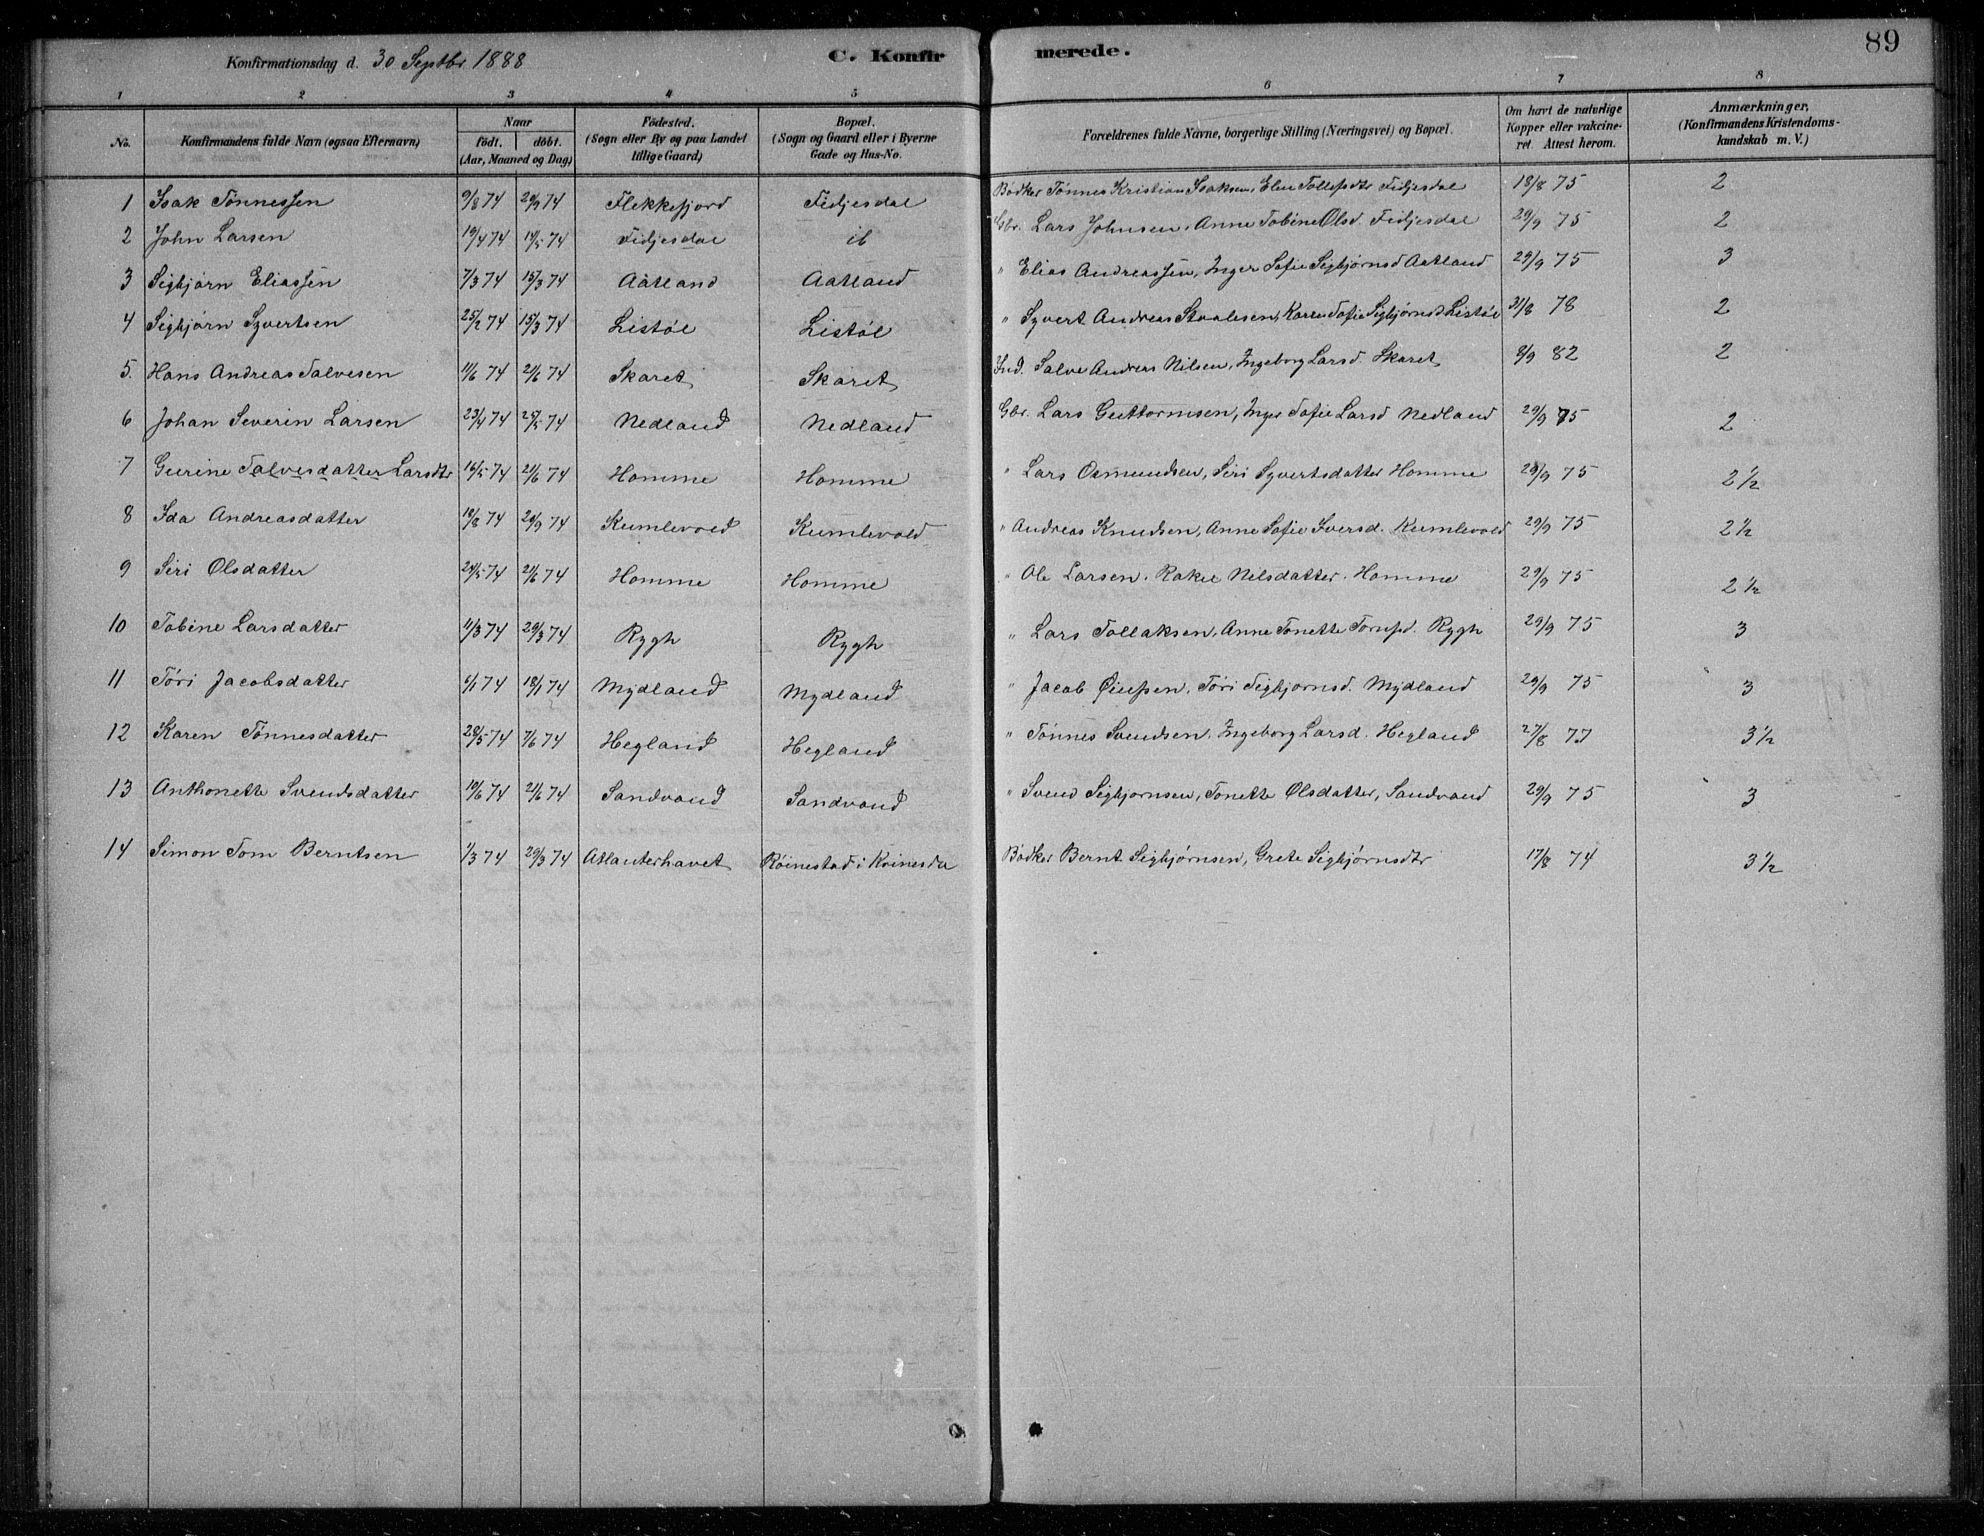 89
Konfirmationsdag d. 30 Septbr 1888 C. Konfirmerede.
1 2 3 4 5 6 7 8
No. Konfirmandens fulde Navn (ogsaa Efternavn) Naar födt. döbt. (Aar, Maaned og Dag) Födested. (Sogn eller By og paa Landet tillige Gaard) Bopæl. (Sogn og Gaard eller i Byerne Gade og Hus-No. Forældrenes fulde Navne, borgerlige Stilling (Næringsvei) og Bopæl. Om havt de naturlige Kopper eller vakcineret. Attest herom. Anmærkninger. (Konfirmandens Kristendomskundskab m. V.)
1 Isak Tønnessen 9/8 74 20/9 74 Flekkefjord Fidjesdal Bødker Tønnes Kristian Isaksen, Elen Tollefsdtr Fidjesdal 18/8 75 2
2 John Larsen 19/4 74 14/5 74 Fidjesdal ib Gbr. Lars Johnsen, Anne Tobine Olsd. Fidjesdal 29/9 75 2
3 Sigbjørn Eliassen 7/3 74 15/3 74 Aatland Aatland " Elias Andreassen, Inger Sofie Sigbjørnsd Aatland 29/9 75 3
4 Sigbjørn Syvertsen 25/2 74 15/3 74 Listøl Listøl " Syvert Andreas Staalesen, Karen Sofie Sigbjørnsd Listøl 31/8 78 2
5. Hans Andreas Salvesen 11/6 74 21/6 74 Skaret Skaret Ind. Salve Andreas Nilsen, Ingeborg Larsd. Skaret 9/9 82 2
6 Johan Severin Larsen 23/4 74 25/5 74 Nedland Nedland Gbr. Lars Guttormsen, Inger Sofie Larsd Nedland 29/9 75 2
7 Gurine Salvesdatter Larsdtr 16/5 74 21/6 74 Homme Homme " Lars Osmundsen, Siri Syvertsdatter Homme 29/9 75 2 1/2
8 Ida Andreasdatter 18/8 74 20/9 74 Kumlevold Kumlevold " Andreas Knudsen, Anne Sofie Iversd. Kumlevold 29/9 75 2 1/2
9 Siri Olsdatter 24/5 74 21/6 74 Homme Homme " Ole Larsen, Rakel Nilsdatter, Homme 29/9 75 2 1/2
10 Tobine Larsdatter 11/3 74 29/3 74 Rygh Rygh " Lars Tollaksen, Anne Tonette Rygh 29/9 75 3
11 Töri Jacobsdatter 6/1 74 18/1 74 Mydland Mydland " Jacob Töri Sigbjornsd. Mydland 29/9 75 3
12 Karen Tønnesdatter 28/5 74 7/6 74 Hegland Hegland " Tønnes Svendsen, Ingeborg Larsd. Hegland 27/8 77 3 1/2
13 Anthonette Svendsdatter 10/6 74 21/6 74 Sandvand Sandvand " Svend Sigbjornsen, Tonette Olsdatter, Sandvand 29/9 75 3
14 Simon Tom Berntsen 1/3 74 29/3 74 Atlanterhavet Röinestad i Bödker Bernt Sigbjørnsen, Grete Sigbjørnsdtr 17/8 74 3 1/2